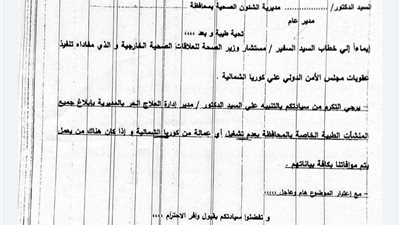 السيد الدكتور/ ................ مديرية الشئون الصحية بمحافظة
مدير عام
تحية طيبة و بعد ،،،،
إيماءاً إلي خطاب السيد السفير / مستشار وزير الصحة للعلاقات الصحية الخارجية و الذي مفاداه تنفيذ
عقوبات مجلس الأمن الدولي علي كوريا الشمالية .
– يرجي التكرم من سيادتكم بالتنبيه علي السيد الدكتور / مدير إدارة العلاج الحر بالمديرية بإبلاغ جميع
المنشآت الطبية الخاصة بالمحافظة بعدم تشغيل أي عمالة من كوريا الشمالية و إذا كان هناك من يعمل
يتم موافاتنا بكافة بياناتهم .
– مع إعتبار الموضوع هام وعاجل ،،،،،
و تفضلوا سيادتكم بقبول وافر الاحترام ،،،،